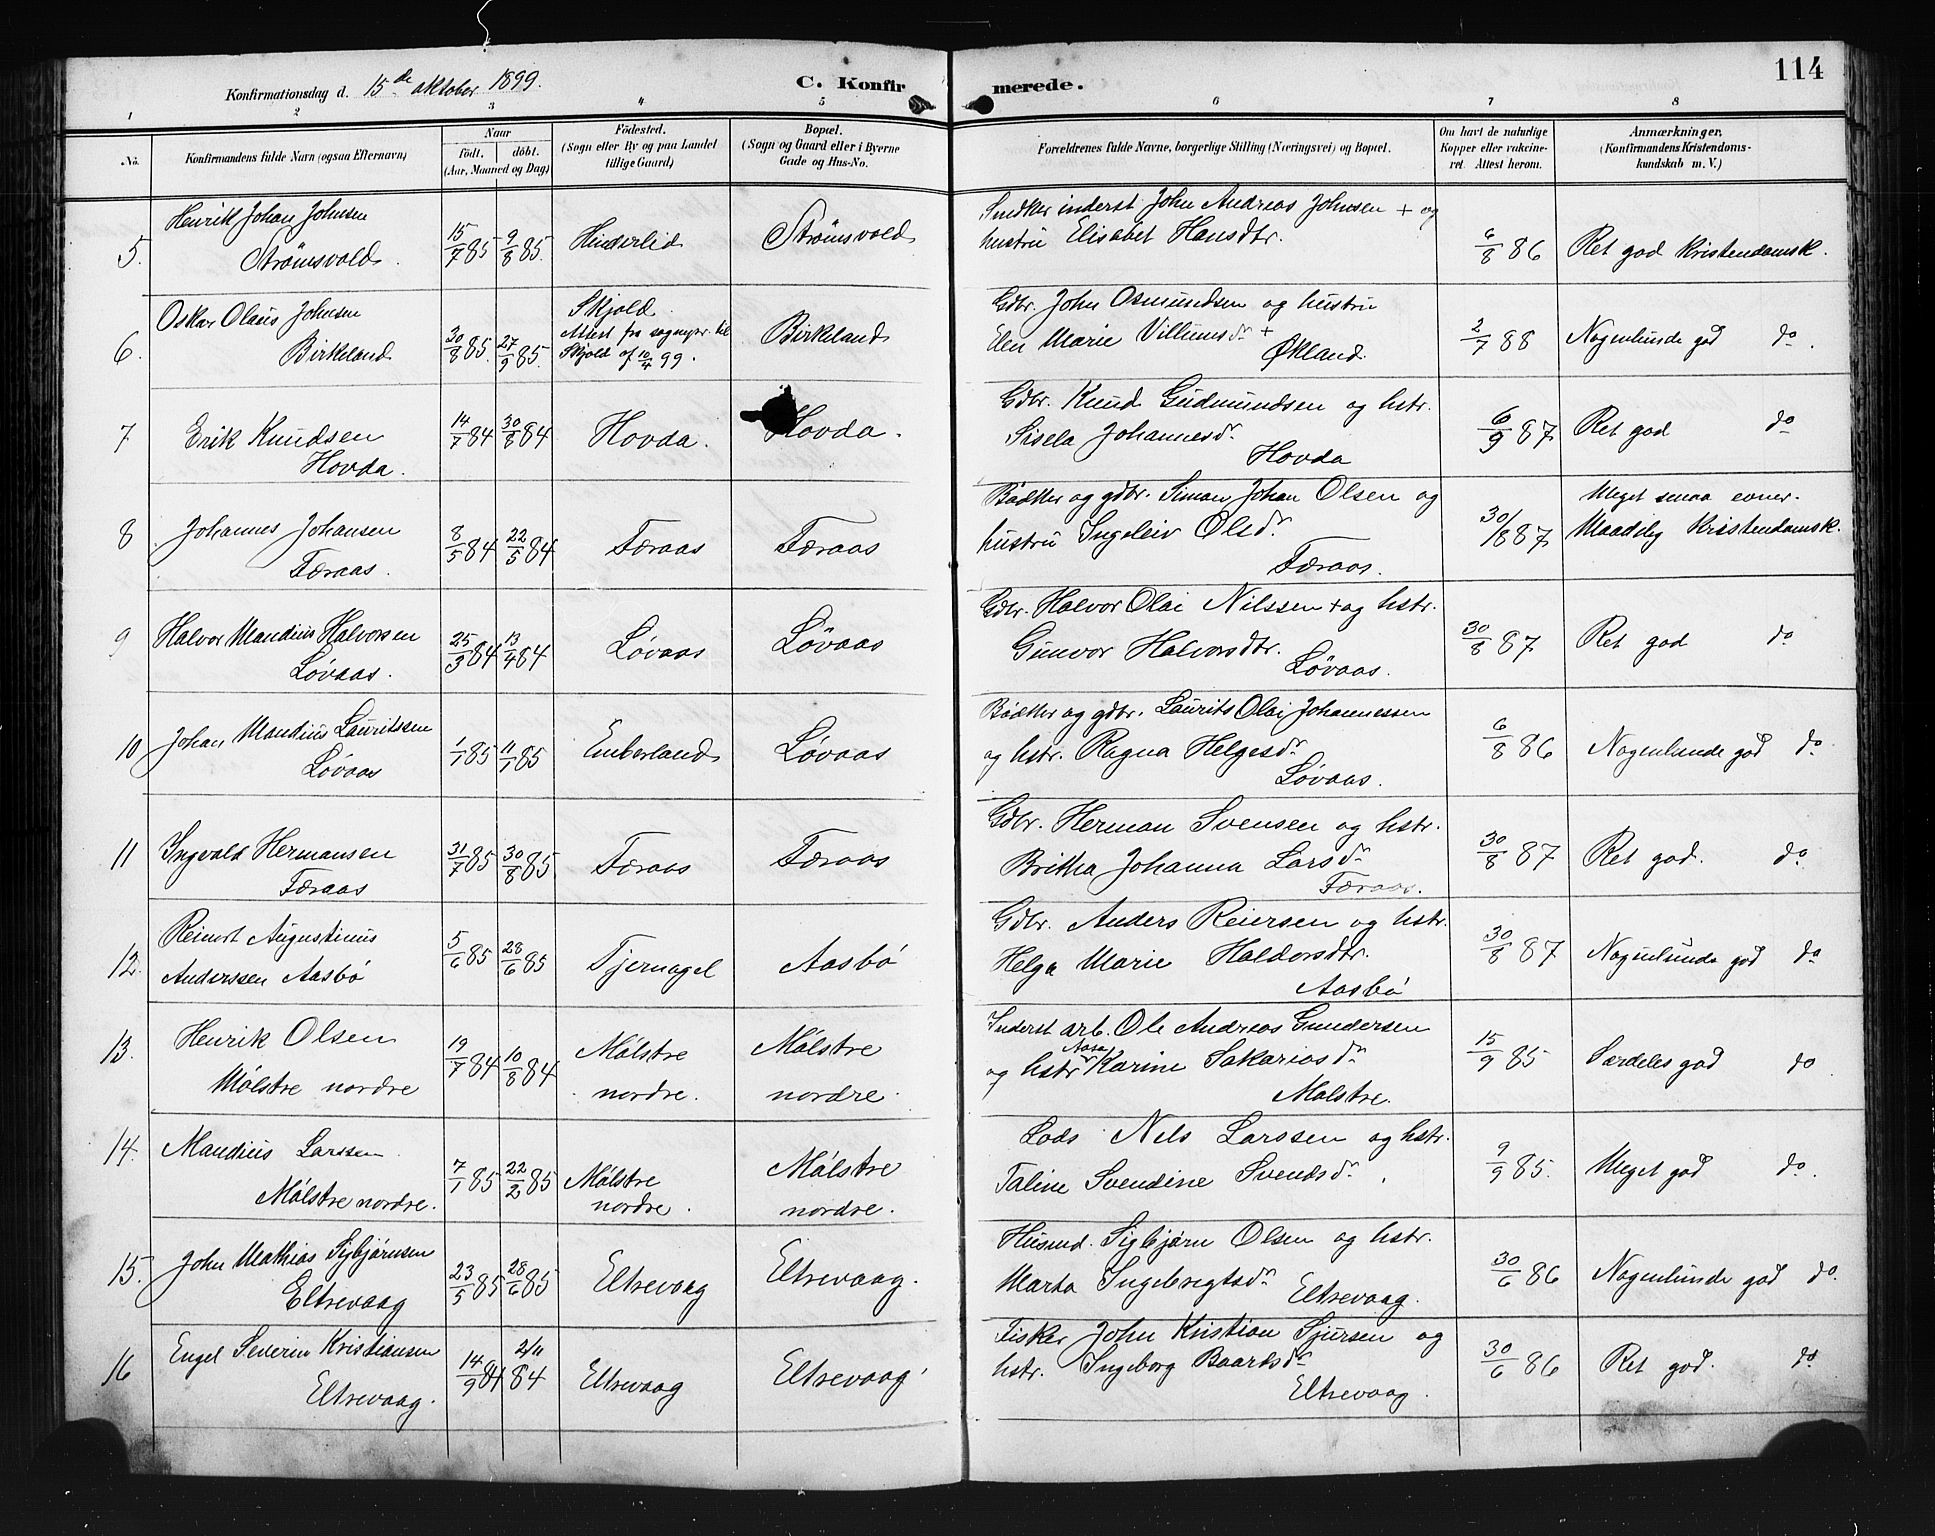 114
Konfirmationsdag d. 15de oktober 1899. C. Konfirmerede.
1 2 3 4 5 6 7 8
No.
Konfirmandens fulde Navn (ogsaa Efternavn)
Naar
født. døbt.
(Aar, Maaned og Dag)
Födested.
(Sogn eller By og paa Landet
tillige Gaard)
Bopæl.
(Sogn og Gaard eller i Byerne
Gade og Hus-No.
Forældrenes fulde Navne, borgerlige Stilling (Næringsvei) og Bopæl.
Om havt de naturlige
Kopper eller vakcine-
ret. Attest herom.
Anmærkninger.
(Konfirmandens Kristendoms-
kundskab m. V.)
5. Henrik Johan Johnsen
Strømsvold.
15/7 85 9/8 85. Hinderlid Strømsvold
Snedker inderst John Andreas Johnsen + og
hustru Elisabet Hansdtr.
6/8 86 Ret god Kristendomsk.
6. Oskar Olaus Johnsen
Birkeland
30/8 85. 27/9 85.
Skjold.
Attest fra sognepr. til
Skjold af 10/4 99.
Birkeland
Gdbr. John Osmundsen og hustru
Elen Marie Villumsdr +
Økland.
2/7 88 Nogenlunde god do.
7 Erik Knudsen
Hovda.
14/7 84 30/8 84 Hovda. Hovda.
Gdbr. Knud Gudmundsen og hstr.
Sisela Johannesdr
Hovda
6/9 87. Ret god do
8 Johannes Johansen
Færaas.
8/5 84 22/5 84 Færaas Færaas
Bødker og gdbr. Simon Johan Olsen og
hustru Ingeleiv Olsdr.
Færaas.
30/8 87.
Meget smaa evner.
Maadelig Kristendomsk.
9 Halvor Mandius Halvorsen
Løvaas.
25/3 84 13/4 84 Løvaas Løvaas
Gdbr. Halvor Olai Nilssen + og hstr.
Gunvor Halvorsdtr.
Løvaas.
30/8 87. Ret god do
10 Johan Mandius Lauritssen
Løvaas
1/1 85 11/1 85 Emberland Løvaas
Bødker og gdbr. Laurits Olai Johannessen
og hstr. Ragna Helgesdr
Løvaas.
6/8 86 Nogenlunde god do
11 Ingvald Hermansen
Færaas
31/7 85 30/8 85 Færaas Færaas
Gdbr. Herman Svensen og hstr.
Britha Johanna Larsdr
Færaas.
30/8 87 Ret god. do
12. Reinert Augustinus
Anderssen Aasbø
5/6 85 28/6 85 Tjernagel Aasbø
Gdbr. Anders Reiersen og hstr.
Helga Marie Haldorsdtr.
Aasbø
30/8 87 Nogenlunde god do
13. Henrik Olsen
Mølstre nordre
19/7 84 10/8 84
Mølstre
nordre.
Mølstre
nordre.
Inderst arb. Ole Andreas Gundersen
og hstr Aasa Karine Sakariasdr
Mølstre.
15/9 85 Særdeles god do
14. Mandius Larssen
Mølstre nordre.
7/1 85 22/2 85
Mølstre
nordre.
Mølstre
nordre.
Lods Nels Larssen og hstr.
Taline Svendine Svendsdr.
9/9 85. Meget god do.
15. John Mathias Sigbjørnsen
Eltrevaag
23/5 85 28/6 85 Eltrevaag Eltrevaag.
Husmd. Sigbjørn Olsen og hstr.
Marta Ingebregtsdr
Eltrevaag.
30/6 86 Nogenlunde god do.
16 Engel Severin Kristiansen
Eltrevaag.
14/9 84 2/11 84 Eltrevaag Eltrevaag
Fisker John Kristian Sjursen og
hstr. Ingeborg Baardsdr
Eltrevaag.
30/6 86 Ret god. do